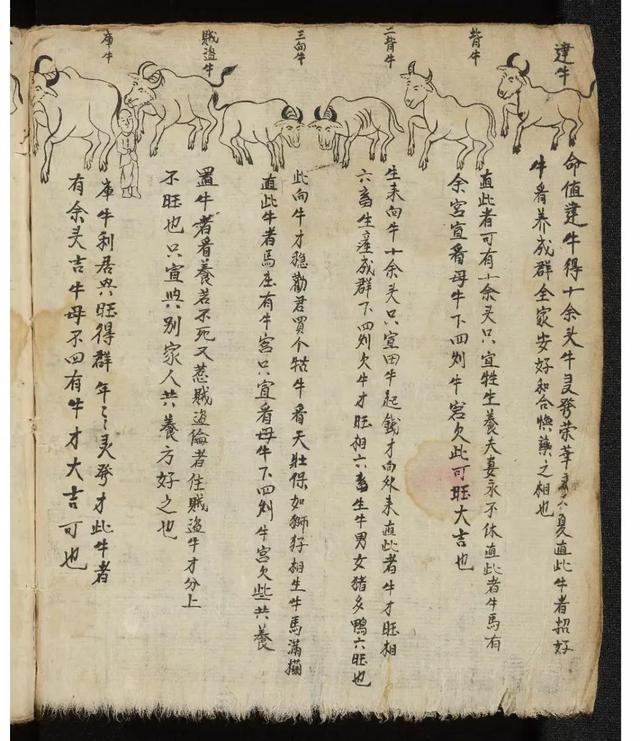 達牛
命值達牛得十余头牛灵發荣華直此牛者招好
牛看养成群全家安好和合懊藥之相也
背牛
直此者可有十余头只宜牲生養夫妻永不休直此者牛馬有
余宮宜看母牛下四则牛宮欠此可旺大吉也
二背牛
生未向牛十余头只宜田牛起錢才向外来直此者牛才旺相
六畜生産成群下四则欠牛才旺相六畜生牛男女猪多鴨六旺也
三向牛
此向牛才穏勸君買个牯牛看天壯保如獅狩相生牛馬滿
直此牛者馬座有牛宮只宜看母牛下四则牛宮欠些共養
賊盗牛
置牛者看養若不死又惹賊盗倫者住賊盗牛才分上
不旺也只宜與别家人共養方好之也
庫牛
庫牛利居興旺得群年〻灵發才此牛者
有余头吉牛母不四有牛才大吉可也